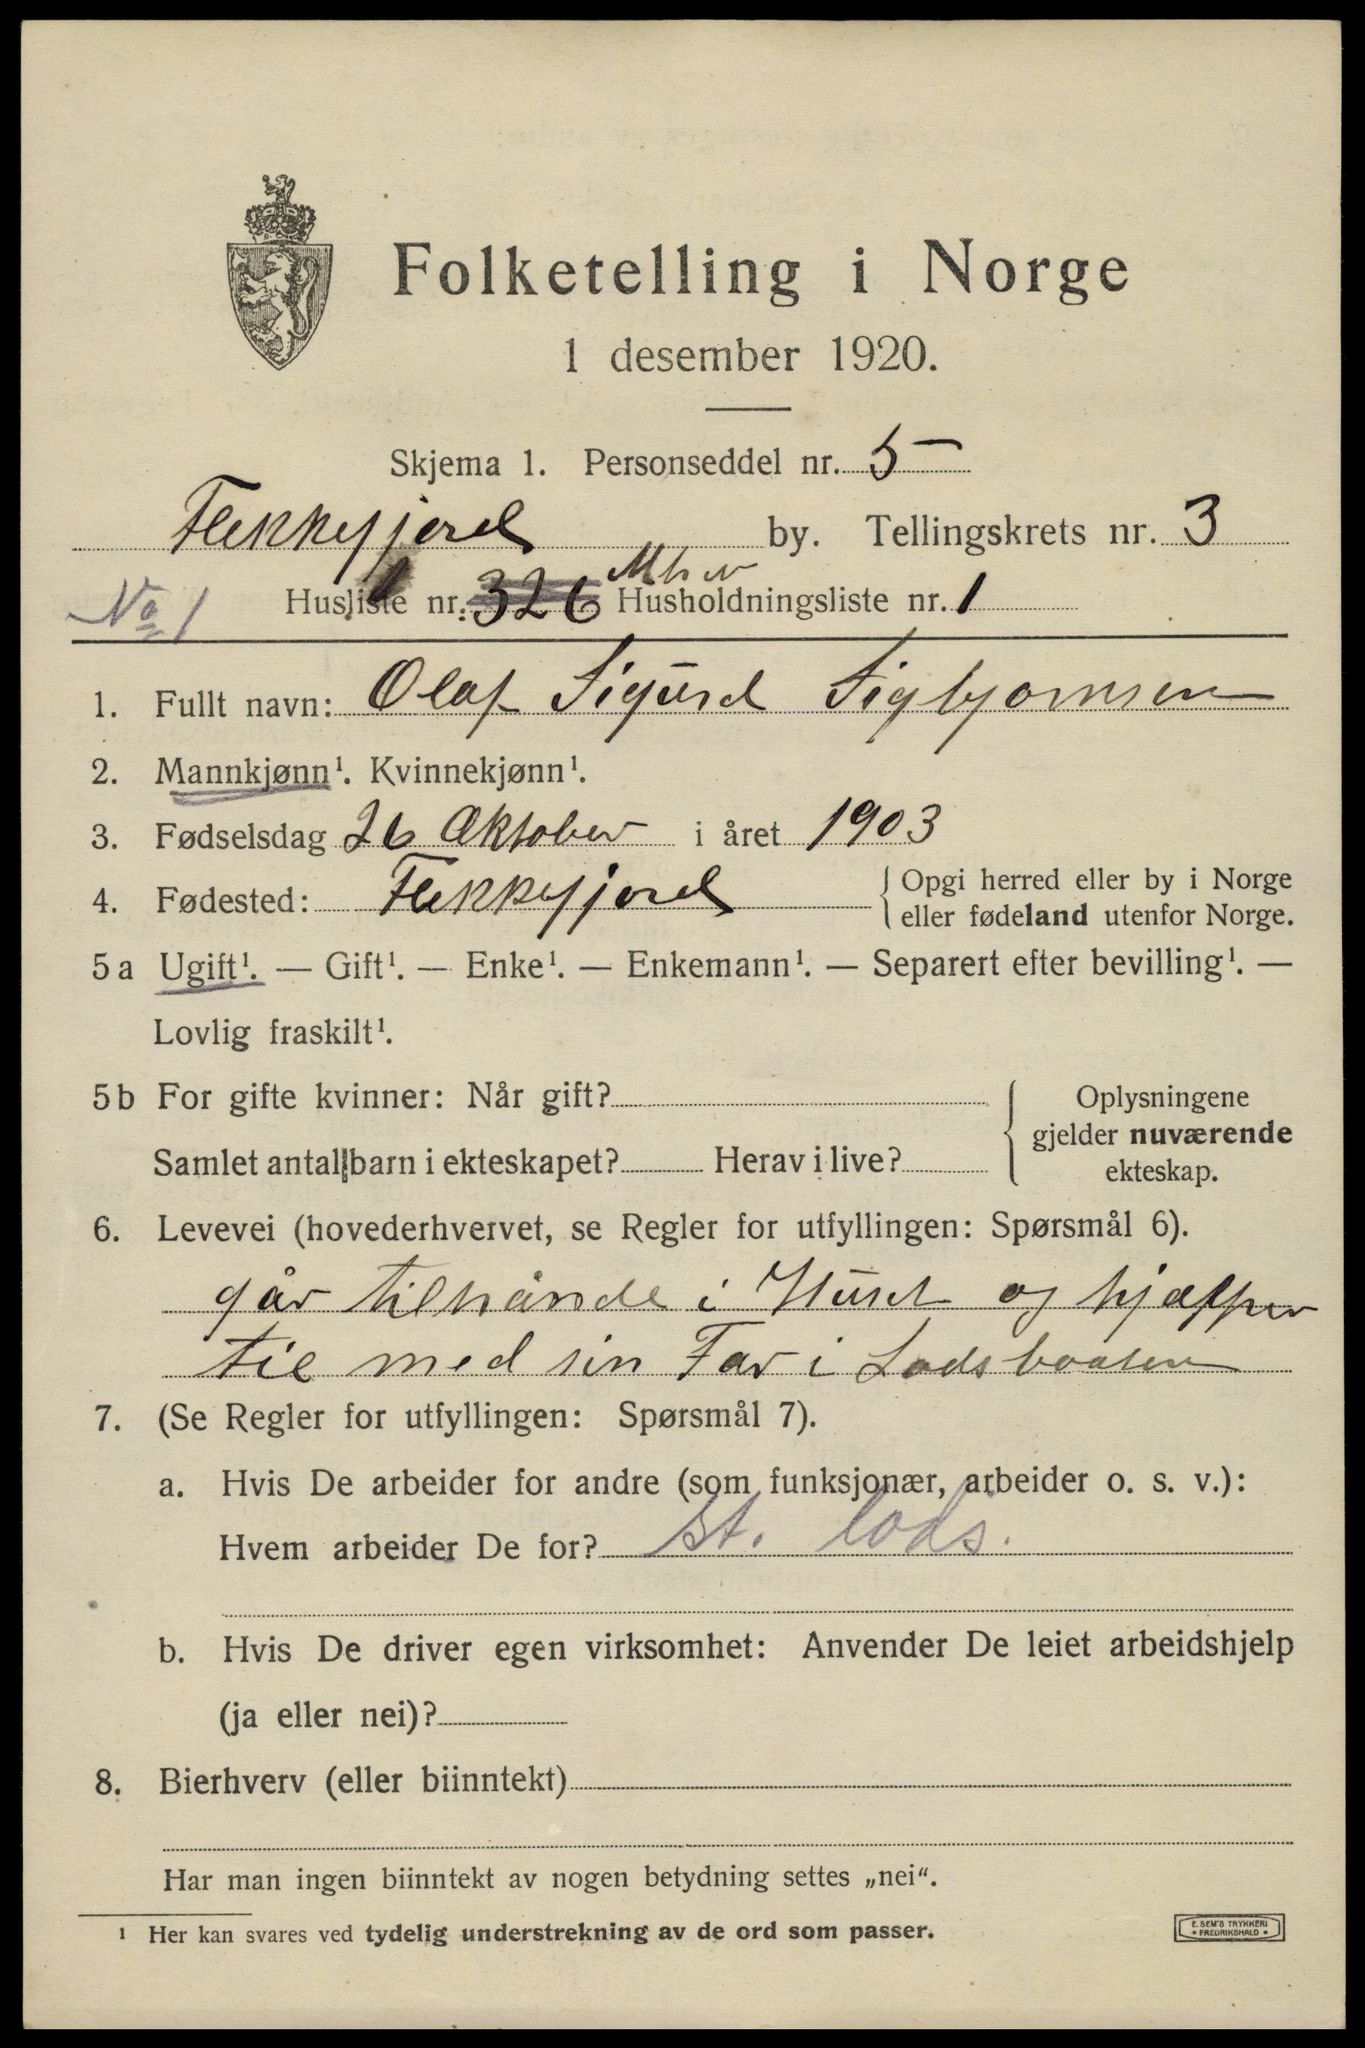 Folketelling i Norge
1 desember 1920.
Skjema 1. Personseddel nr. 5
Flekkefjord by. Tellingskrets nr. 3
No 1 Husliste nr. 326 Husholdningsliste nr. 1
1. Fullt navn: Olaf Sigurd Sigbjornsen
2. Mannkjønn¹. Kvinnekjønn¹.
3. Fødselsdag 26 Oktober i året 1903
4. Fødested: Flekkefjord { Opgi herred eller by i Norge
eller fødeland utenfor Norge.
5a Ugift¹. — Gift¹. — Enke¹. — Enkemann¹. — Separert efter bevilling¹. —
Lovlig fraskilt¹.
5b For gifte kvinner: Når gift? { Oplysningene
gjelder nuværende
Samlet antall barn i ekteskapet? Herav i live?
ekteskap.
6. Levevei (hovederhvervet, se Regler for utfyllingen: Spørsmål 6).
går tilhånde i Huset og hjælper
til med sin Far i Lodsbaaten
7. (Se Regler for utfyllingen: Spørsmål 7).
a. Hvis De arbeider for andre (som funksjonær, arbeider o. s. v.):
Hvem arbeider De for? st. lods.
b. Hvis De driver egen virksomhet: Anvender De leiet arbeidshjelp
(ja eller nei)?
8. Bierhverv (eller biinntekt)
Har man ingen biinntekt av nogen betydning settes „nei“.
¹ Her kan svares ved tydelig understrekning av de ord som passer.
E. SEM'S TRYKKERI
* FREDRIKSHALD *